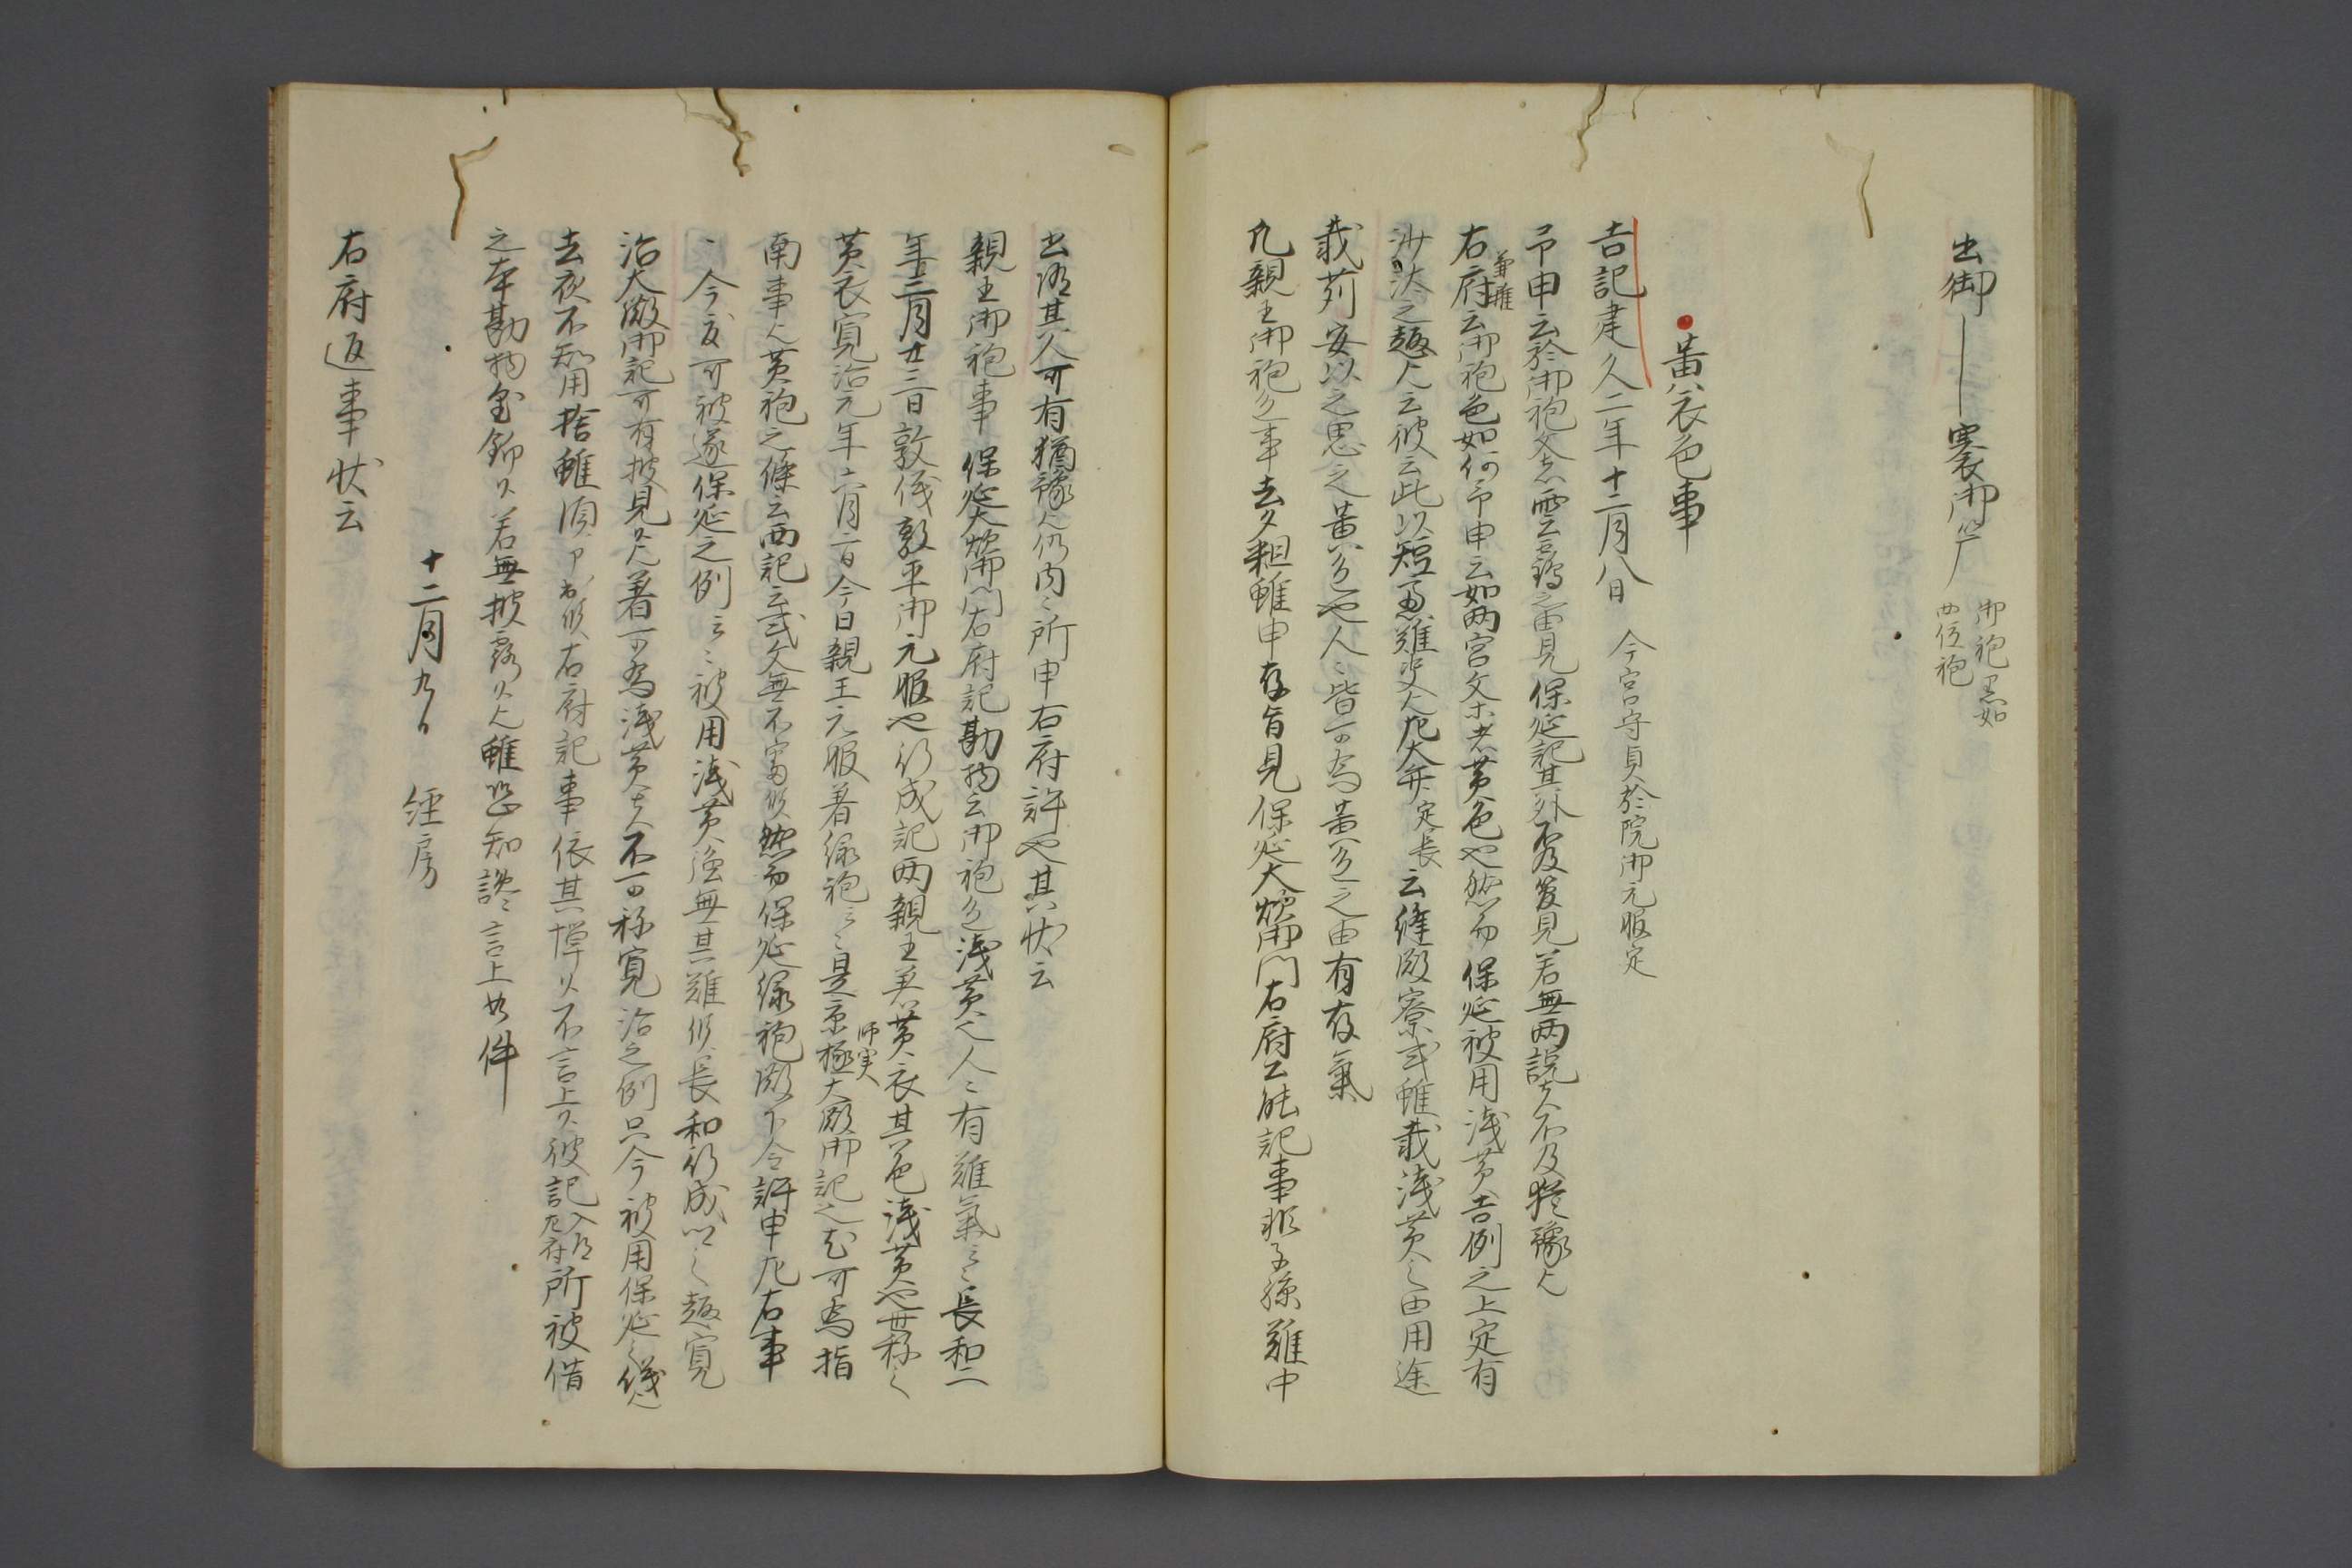 出御―――褰御簾 御袍黒如
四位袍
黄衣色事
吉記建久二年十二月八日 今宮守貞於院御元服定
予申云於御袍文者雲鶴之由見保延記其外不及覚見若無両説者不及猶豫歟
右府兼雅云御袍色如何予申云如両宮文亦者黄色也然而保延被用浅黄吉例之上定有
沙汰之趣歟云彼云此以短慮難決歟左大弁定長云縫殿寮式雖載浅黄之由用途
載苅安以之思之黄色也人々皆可為黄色之由有存氣
凡親王御袍色事去夕粗雖申存旨見保延大炊御門右府公能記事非子孫難中
出済其人可有猶豫歟仍内々所申右府許也其状云
親王御袍事保延大炊御門右府記勘物云御袍色浅黄也人々有難氣云々長和二
年三月廿三日敦儀敦平御元服也行成記両親王着黄衣其色浅黄也世称之
黄衣寛治元年六月二日今日親王元服着緑袍云々是京極師実大殿御記也尤可為指
南事歟黄袍之條云両記云式文無不審候然而保延緑袍殿下令許申左右事
々今度可被遂保延之例云々被用浅黄強無其難候長和行成以之趣寛
治大殿御記可有披見歟着可為浅黄者不可称寛治之例只今被用保延之儀歟
去夜不知用捨雖須申出候右府記事依其憚候不言上候彼記入道左府所被借
之本勘物金銀候若無披露候歟雖恐知讒言上如件
十二月九日 経房
右府返事状云